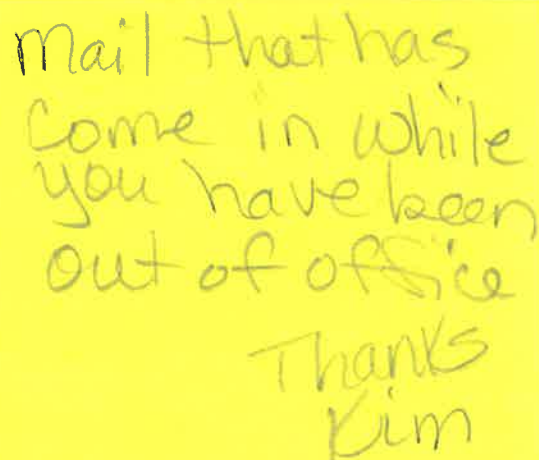 Mail that has
come in while
you have been
out of office
Thanks
Kim